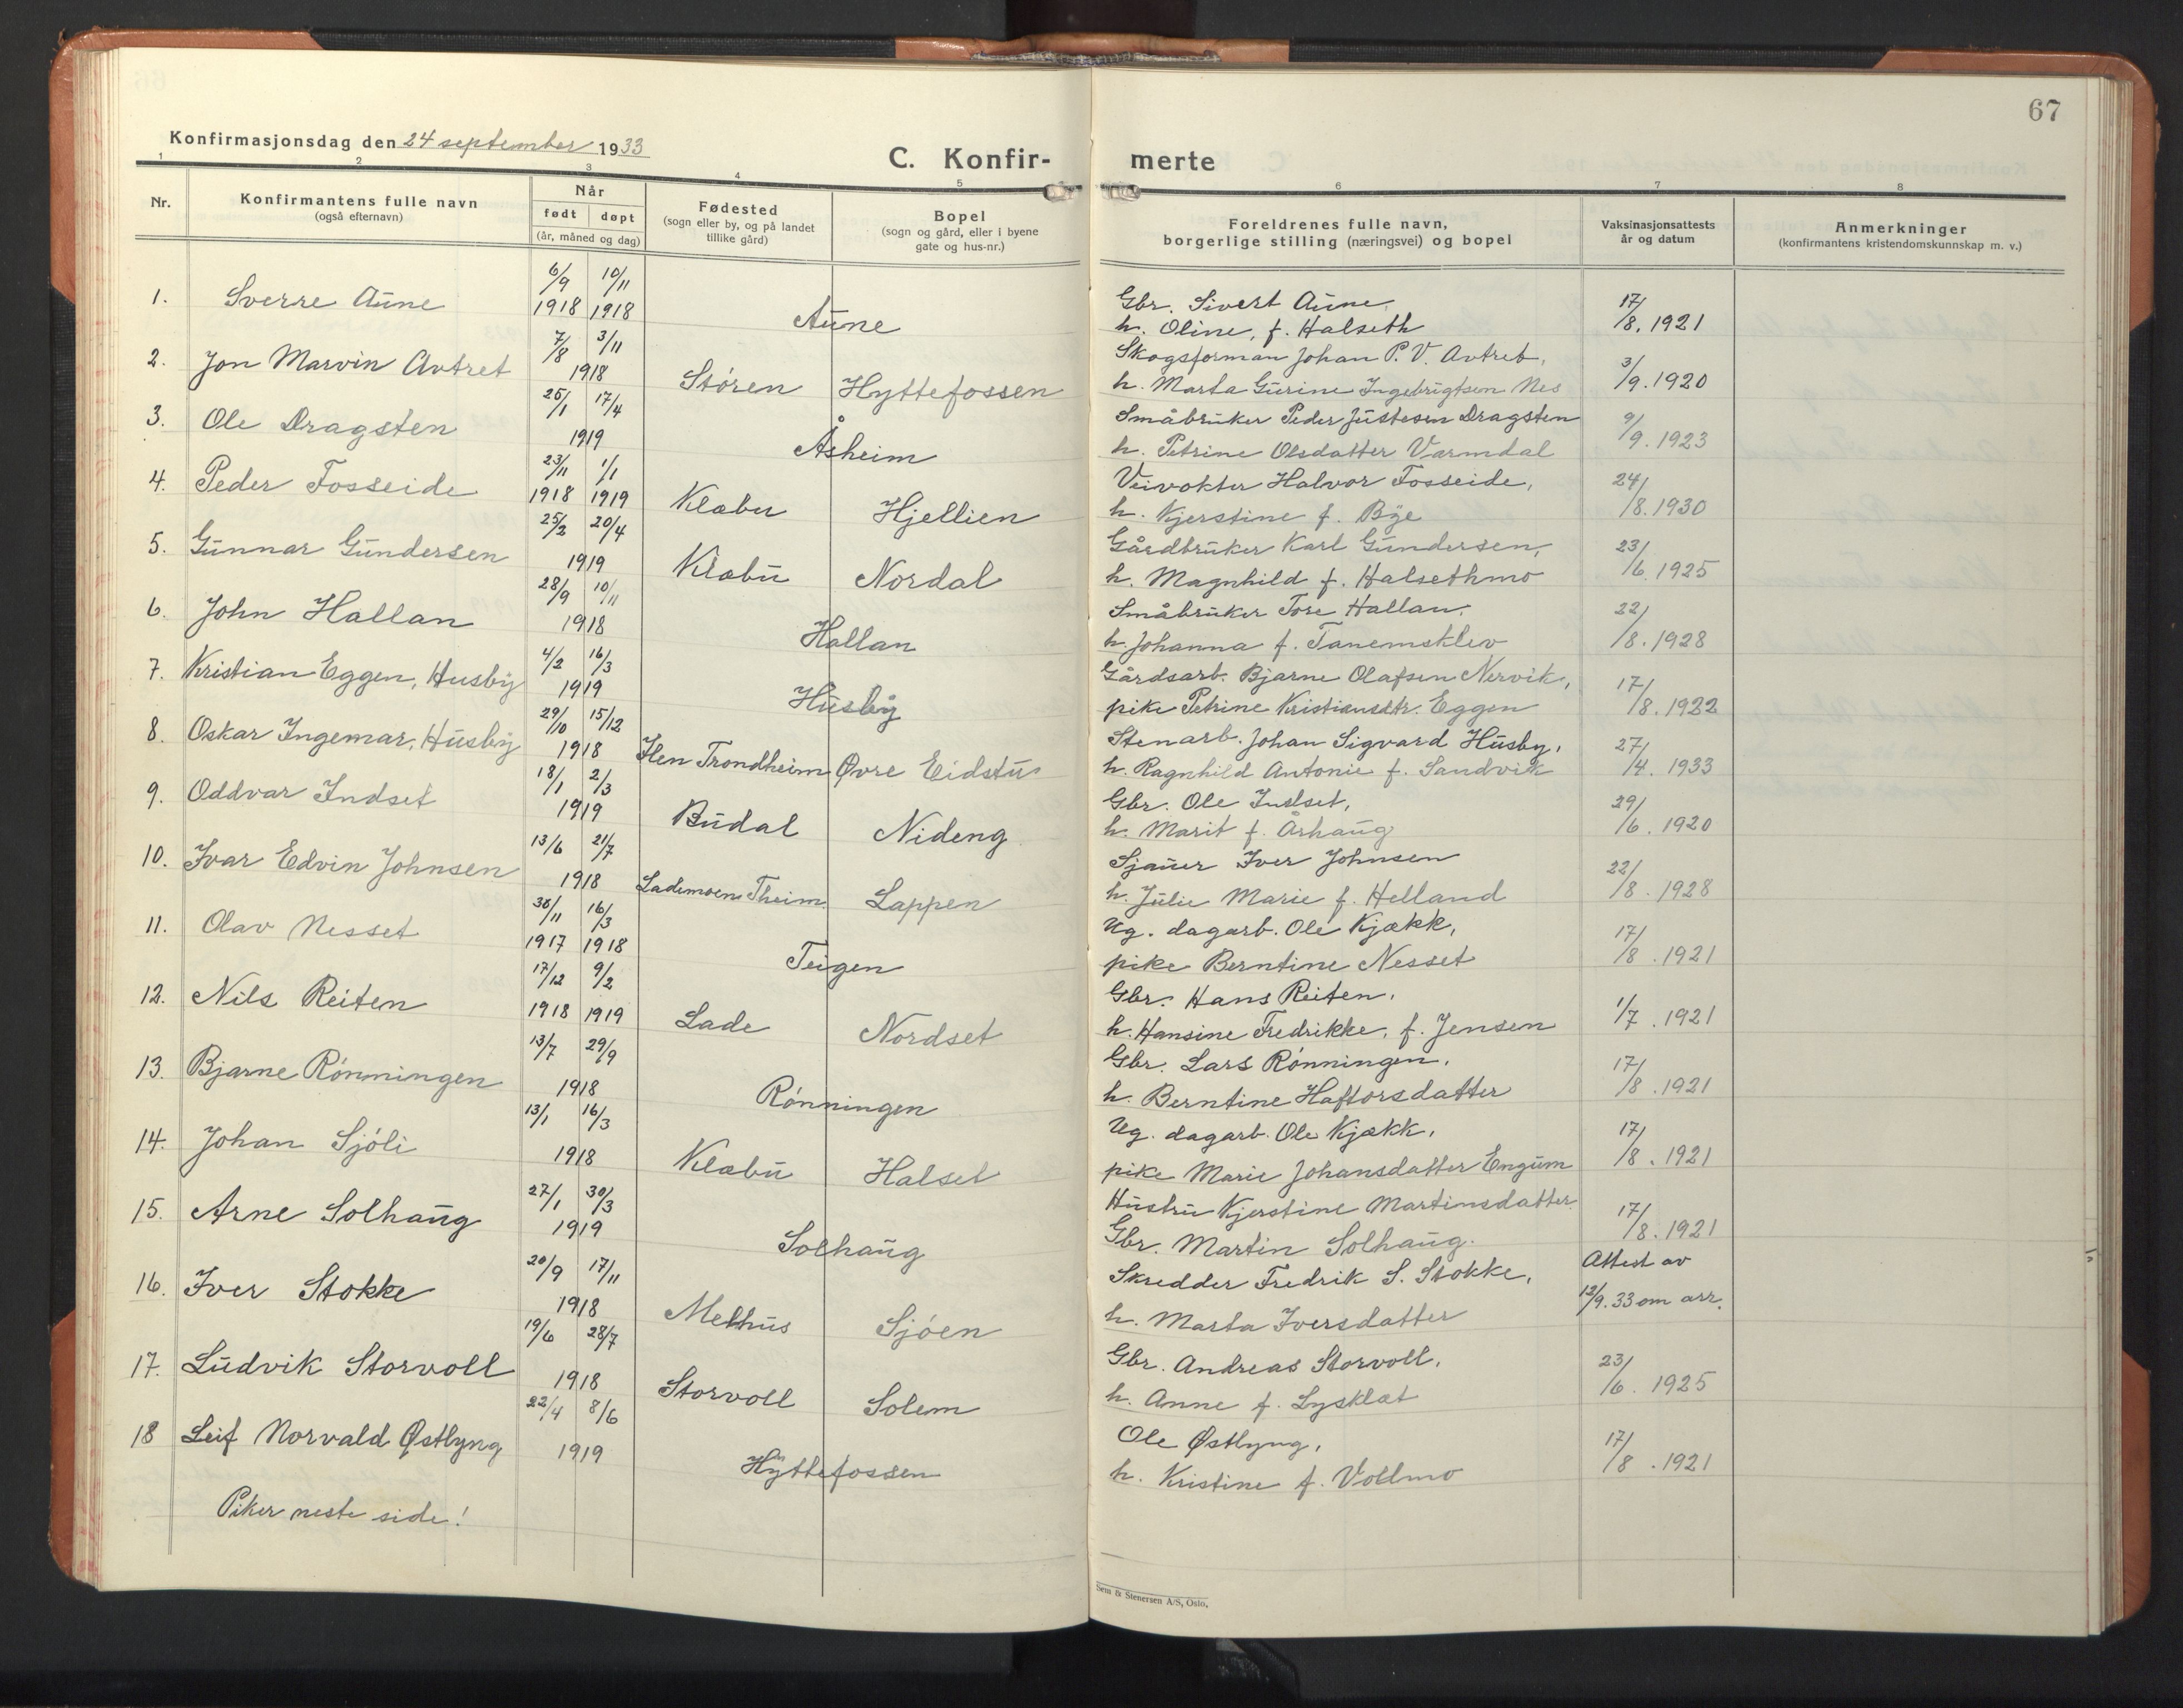 67
Konfirmasjonsdag den 24 september 1933
C. Konfir- merte
1 2 3 4 5 6 7 8
Nr.
Konfirmantens fulle navn
(også efternavn)
Når
født døpt
(år, måned og dag)
Fødested
(sogn eller by, og på landet
tillike gård)
Bopel
(sogn og gård, eller i byene
gate og hus-nr.)
Foreldrenes fulle navn,
borgerlige stilling (næringsvei) og bopel
Vaksinasjonsattests
år og datum
Anmerkninger
(konfirmantens kristendomskunnskap m. v.)
1. Sverre Aune 6/9 1918 10/11 1918 Aune
Gbr. Sivert Aune,
h. Oline, f. Halseth
17/8. 1921
2. Jon Marvin Avtret 7/8 3/11 1918 Støren Hyttefossen
Skogsforman Johan P. V. Avtret,
h. Marta Gurine Ingebrigtsen Nes
3/9. 1920
3. Ole Dragsten 25/1 17/4 1919 Åsheim
Småbruker Peder Justesen Dragsten
h. Petrine Olsdatter Varmdal
9/9. 1923
4. Peder Fosseide 23/11 1918 1/1 1919 Klæbu Hjellien
Veivokter Halvor Fosseide,
h. Kjerstine f. Bye
24/8. 1930
5. Gunnar Gundersen 25/2 20/4 1919 Klæbu Nordal
Gårdbruker Karl Gundersen,
h. Magnhild f. Halsethmo
23/6. 1925
6. John Hallan 28/9 10/11 1918 Hallan
Småbruker Tore Hallan,
h. Johanna f. Tanemsklev
22/8. 1928
7. Kristian Eggen, Husby 4/2 16/3 1919 Husby
Gårdsarb. Bjarne Olafsen Nervik,
pike Petrine Kristiansdtr. Eggen
17/8. 1922
8. Oskar Ingemar, Husby 29/10 15/12 1918 Ilen Trondheim Øvre Eidstu
Stenarb. Johan Sigvard Husby,
h. Ragnhild Antonie f. Sandvik
27/4. 1933
9. Oddvar Indset 18/1 2/3 1919 Budal Nideng
Gbr. Ole Indset,
h. Marit f. Århaug
29/6. 1920
10. Ivar Edvin Johnsen 13/6 21/7 1918 Lademoen Theim. Lappen
Sjauer Iver Johnsen
h. Julie Marie f. Helland
22/8. 1928
11. Olav Nesset 30/11 1917 16/3 1918 Teigen
Ug. dagarb. Ole Kjækk,
pike Berntine Nesset
17/8. 1921
12. Nils Reiten 17/12 1918 9/2 1919 Lade Nordset
Gbr. Hans Reiten,
h. Hansine Fredrikke, f. Jensen
1/7. 1921
13. Bjarne Rønningen 13/7 29/9 1918 Rønningen
Gbr. Lars Rønningen,
h. Berntine Haftorsdatter
17/8. 1921
14. Johan Sjøli 13/1 16/3 1918 Klæbu Halset
Ug. dagarb. Ole Kjækk,
pike Marie Johansdatter Engum
17/8. 1921
15. Arne Solhaug 27/1 30/3 1919 Solhaug
Hustru Kjerstine Martinsdatter
Gbr. Martin Solhaug.
17/8. 1921
16. Iver Stokke 20/9 17/11 1918 Melhus Sjøen
Skredder Fredrik S. Stokke,
h. Marta Iversdatter
Attest av
12/9. 33 om arr.
17. Ludvik Storvoll 19/6 28/7 1918 Storvoll Solem
Gbr. Andreas Storvoll,
h. Anne f. Lysklæt
23/6. 1925
18 Leif Norvald Østlyng 22/4 8/6 1919 Hyttefossen
Ole Østlyng,
h. Kristine f. Vollmo
17/8. 1921
Piker neste side!
Sem & Stenersen A/S, Oslo,